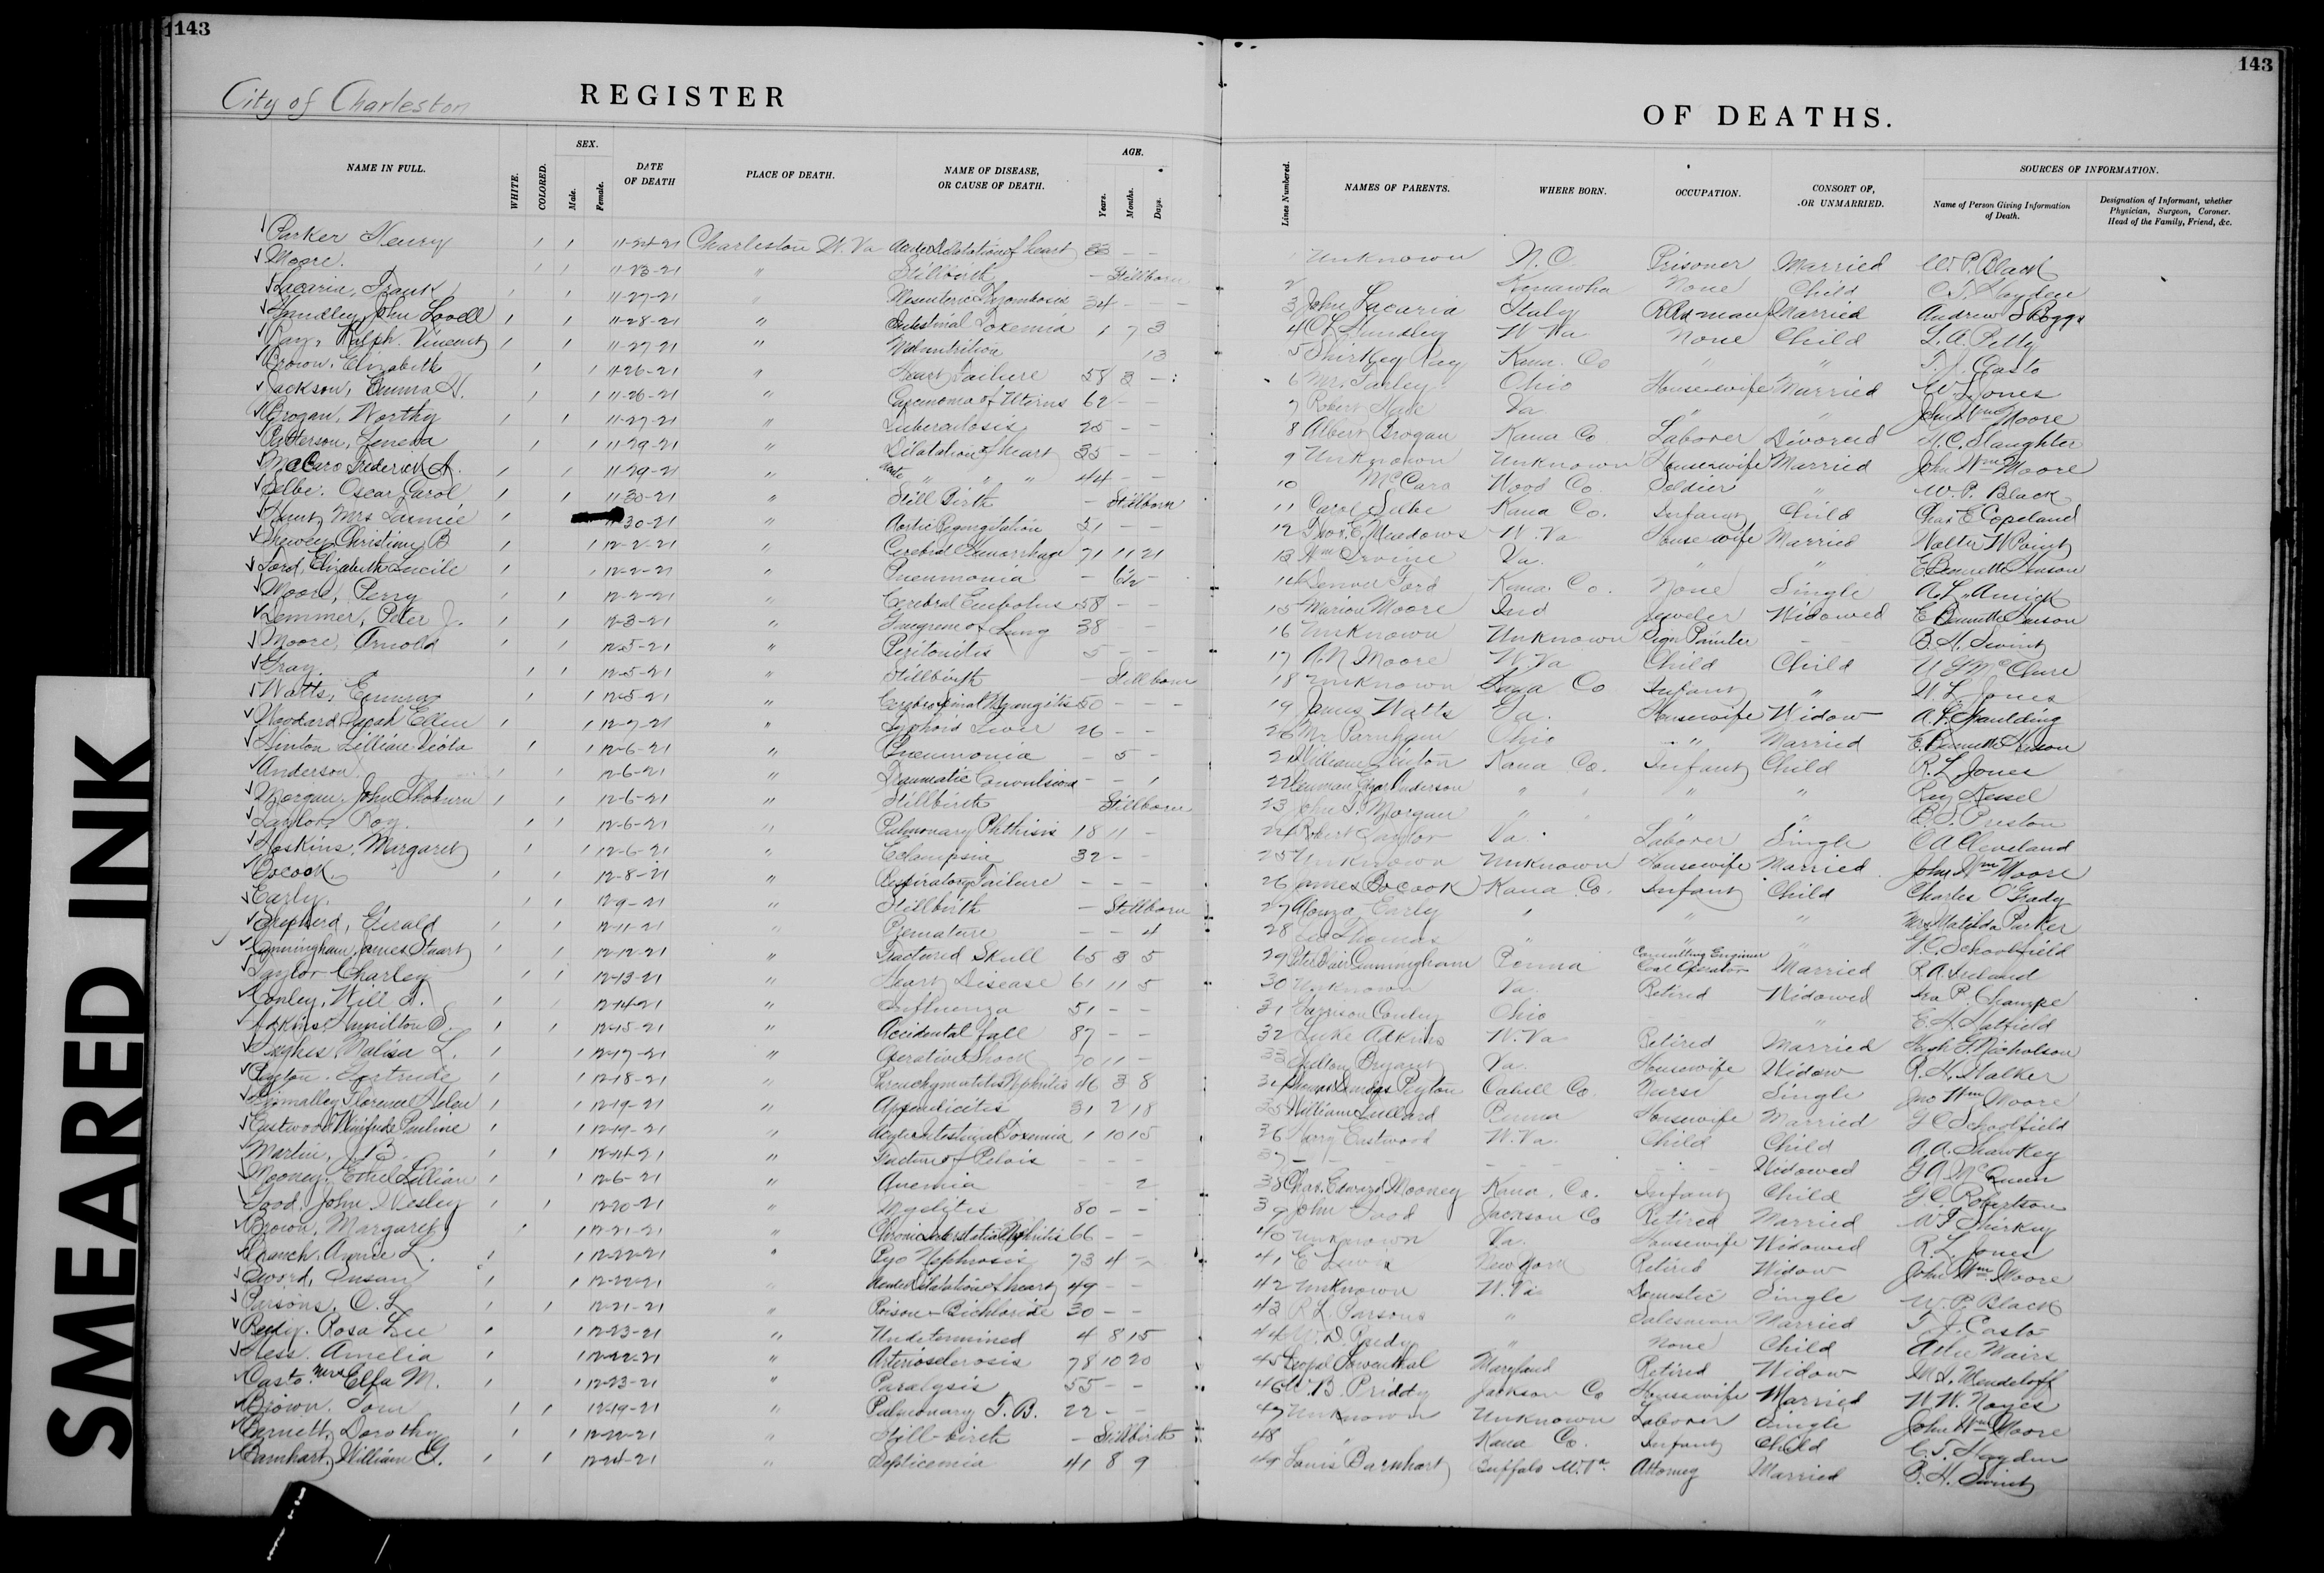 143
143
City of Charleston
REGISTER
OF DEATHS.
NAME IN FULL. WHITE. COLORED. SEX. Male. Female. DATE OF DEATH PLACE OF DEATH. NAME OF DISEASE, OR CAUSE OF DEATH. AGE. Years. Months. Days.
Lines Numbered. NAMES OF PARENTS. WHERE BORN. OCCUPATION. CONSORT OF, OR UNMARRIED. SOURCES OF INFORMATION. Name of Person Giving Information of Death. Designation of Informant, whether Physician, Surgeon, Coroner. Head of the Family, Friend, &c.
Parker Henry 11-24-21 Charleston W. Va Acute Dilatation of heart Unknown N.C. Prisoner Married W. P. Black
Moore. 11-23-21 " Stillbirth - Stillborn 2 Kanawha None Child C. T. Hayden
Lacaria, Frank 11-27-21 " Mesenteric Thrombosis 34 - - - 3 John Lacaria Italy Married Andrew Skoggs
John Lovell 11-28-21 " Intestinal Toxemia 1 7 3 4 W Va None Child L. A. Petty
Ray, Ralph Vincent 11-27-21 " Malnutrition 13 5 Shirkey Ray Kana. Co " " T. J. Casto
Brown, Elizabeth 11-26-21 " Heart Failure 58 3 - 6 Mr. Farley Ohio Housewife Married Jones
Jackson, Emma 11-26-21 " Carcinoma of Uterus 62 - - 7 Robert Va " " John Wm Moore
Brogan, Worthy 11-27-21 " Tuberculosis 25 - - 8 Albert Brogan Kana Co Laborer Divorced H. C. Slaughter
Patterson, Geneva 11-29-21 " Dilatation of heart 35 - - 9 Unknown Unknown Housewife Married John Wm Moore
McCaro Frederick A. 11-29-21 " Acute " " " 44 - - 10 McCaro Wood Co. Soldier " W. P. Black
Oscar Carol 11-30-21 " Still Birth - Stillborn 11 Carol Kana Co. Infant Child Chas E Copeland
Mrs Fannie 11-30-21 " Aortic Regurgitation 51 - - 12 Thos. E. Meadows W. Va Housewife Married Walter W Point
Christiny B 12-2-21 " Cerebral Hemorrhage 71 11 21 13 Wm Irvine Va. " " E Bennette Henson
Ford, Elizabeth Lucile 12-2-21 " Pneumonia - 6½ - 14 Denver Ford Kana. Co. None Single A. L. Amick
Moore, Perry 12-2-21 " Cerebral Embolus 58 - - 15 Marion Moore Ind Jeweler Widowed E Bennette Henson
Lemmer, Peter J. 12-3-21 " Gangrene of Lung 38 - - 16 Unknown Unknown Sign Painter - - B. H. Swint
Moore, Arnold 12-5-21 " Peritonitis 5 - - 17 A. N. Moore W. Va Child Child McClure
Gray. 12-5-21 " Stillbirth - Stillborn 18 Unknown Kana Co Infant " Jones
Watts, Emma 12-5-21 " Cerebrospinal Meningitis 50 - - - 19 James Watts Va. Housewife Widow A. L. Spaulding
Woodard Sarah Ellen 12-7-21 " Typhoid Fever 26 - - 20 Mr Parnham Ohio " Married E. Bennette Henson
Hinton Lilliane Viola 12-6-21 " Pneumonia - 5 - 21 William Hinton Kana Co. Infant Child R. L. Jones
Anderson 12-6-21 " Traumatic Convulsions - - 1 22 Anderson " " " Ray Kessel
Morgan, John Thoburn 12-6-21 " Stillbirth Stillborn 23 John T. Morgan " " " Preston
Taylor, Roy. 12-6-21 " Pulmonary Phthisis 18 11 - 24 Robert Taylor Va. Laborer Single Cleveland
Hoskins, Margaret 12-6-21 " Eclampsia 32 - - 25 Unknown Unknown Housewife Married John Wm Moore
Bocook 12-8-21 " Respiratory Failure - - - 26 James Bocook Kana Co. Infant Child Charles O'Grady
Early. 12-9-21 " Stillbirth - Stillborn 27 Alonzo Early " " " Mrs Matilda Parker
Shepherd, Gerald 12-11-21 " Premature - - 4 28 Leo Thomas " " " G. C. Schoolfield
Cunningham, James Stuart 12-12-21 " Fractured Skull 65 3 5 29 Cunningham Penna Consulting Engineer Coal Operator Married R. A. Ireland
Taylor Charley 12-13-21 " Heart Disease 61 11 5 30 Unknown Va. Retired Widowed Ira P. Champe
Conley, Will 12-14-21 " Influenza 51 - - 31 Harrison Conley Ohio - " E. H. Hatfield
Adkins, Hamilton S. 12-15-21 " Accidental fall 87 - - 32 Luke Adkins W. Va Retired Married Hugh G. Nicholson
Hughes Malisa L. 12-17-21 " Operative Shock 70 11 - 33 Bryant Va. Housewife Widow R. H. Walker
Peyton. Gertrude 12-18-21 " Parenchymatitis Nephritis 46 3 8 34 Peyton Cabell Co. Nurse Single Jno Wm Moore
Florence Helen 12-19-21 " Appendicitis 31 2 18 35 William Penna Housewife Married G C Schoolfield
Eastwood Winifrede Pauline 12-19-21 " Acute Intestinal Toxemia 1 10 15 36 Harry Eastwood W. Va. Child Child A. A. Shawkey
Martin, J. B. " Fracture of Pelvis - - - 37 - - - Widowed G. A. McQueen
Mooney, Ethel Lillian 12-6-21 " Anemia 2 38 Chas. Edward Mooney Kana. Co. Infant Child G. C. Robertson
Good, John Wesley 12-20-21 " Myelitis 80 - - 39 John Good Jackson Co Retired Married W. F. Shirkey
Brown, Margaret 12-21-21 " Chronic Interstitial Nephritis 66 - - 40 Unknown Va. Housewife Widowed R. L. Jones
Annie L. 12-22-21 " Pyo Nephrosis 73 4 - 41 E Lewis New York Retired Widow John Wm. Moore
Sword, Susan 12-22-21 " Acute Dilatation of heart 49 - - 42 Unknown W. Va Domestic Single W. P. Black
Parsons, O. L 12-21-21 " Poison - Bichloride 30 - - 43 R L. Parsons " Salesman Married T. J. Casto
Reedy. Rosa Lee 12-23-21 " Undetermined 4 8 15 44 Reedy " None Child
Hess. Amelia 12-22-21 " Arteriosclerosis 78 10 20 45 Lowenthal Maryland Retired Widow M. S. Mendeloff
Casto. Mrs Elfa M. 12-23-21 " Paralysis 55 - - 46 W. B. Priddy Jackson Co Housewife Married W. W. Noyes
Brown. Tom 12-19-21 " Pulmonary T. B. 22 - - 47 Unknown Unknown Laborer Single John Wm Moore
Burnett, Dorothy 12-22-21 " Still-birth - Stillbirth 48 " Kana Co. Infant Child C. T. Hayden
Barnhart, William G. 12-24-21 " Septicemia 41 8 9 49 Lewis Barnhart Buffalo W. Va. Attorney Married B. H. Swint
SMEARED INK